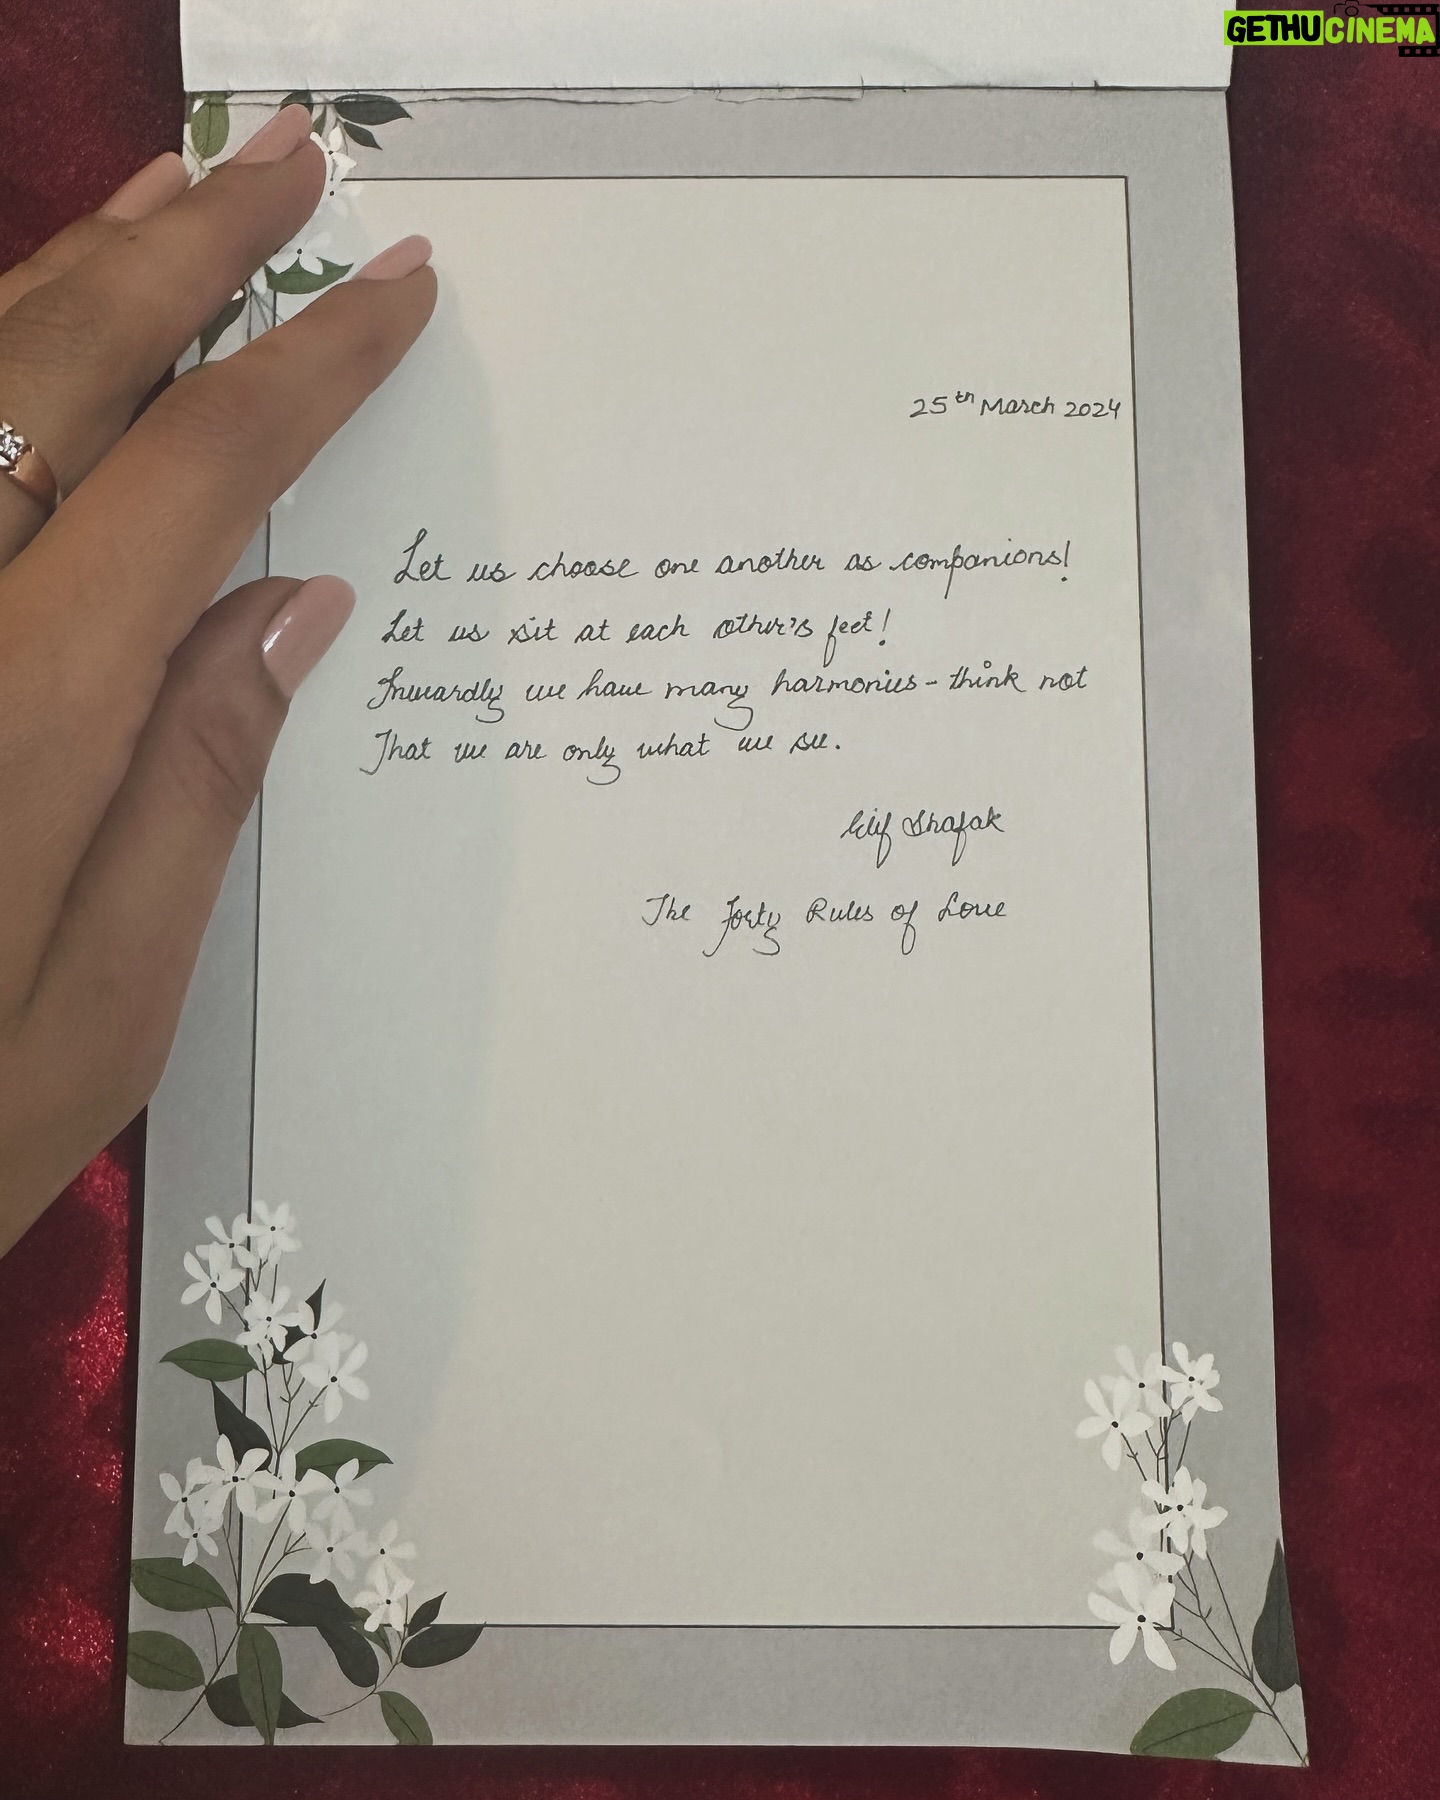 GETHUCINEMA
25th March 2024
Let us choose one another as companions!
Let us sit at each other's feet!
Inwardly we have many harmonies - think not
That we are only what we see.
Elif Shafak
The Forty Rules of Love